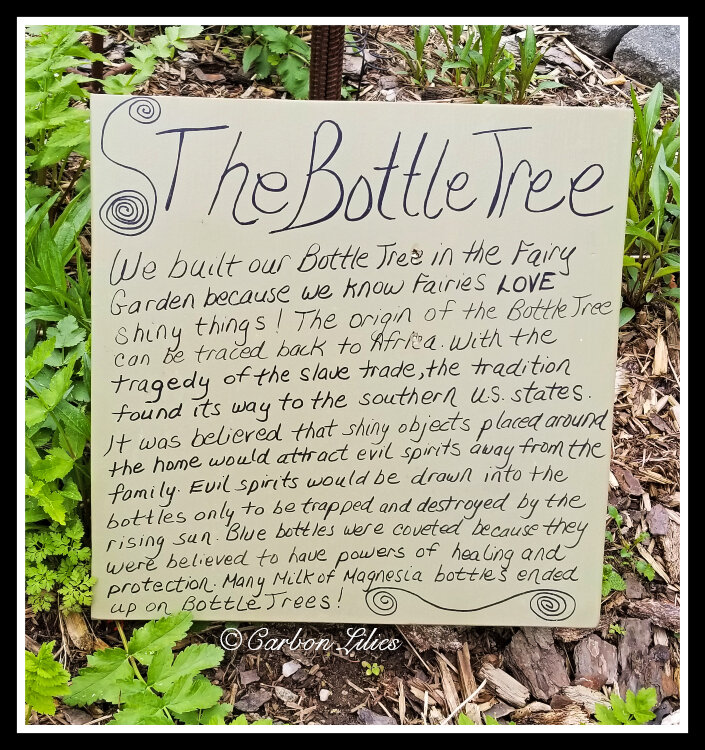 The Bottle Tree
We built our Bottle Tree in the Fairy
Garden because we know Fairies LOVE
shiny things! The origin of the Bottle Tree
can be traced back to Africa. With the
tragedy of the slave trade, the tradition
found its way to the southern U.S. states.
It was believed that shiny objects placed around
the home would attract evil spirits away from the
family. Evil spirits would be drawn into the
bottles only to be trapped and destroyed by the
rising sun. Blue bottles were coveted because they
were believed to have powers of healing and
protection. Many Milk of Magnesia bottles ended
up on Bottle Trees!
© Carbon Lilies